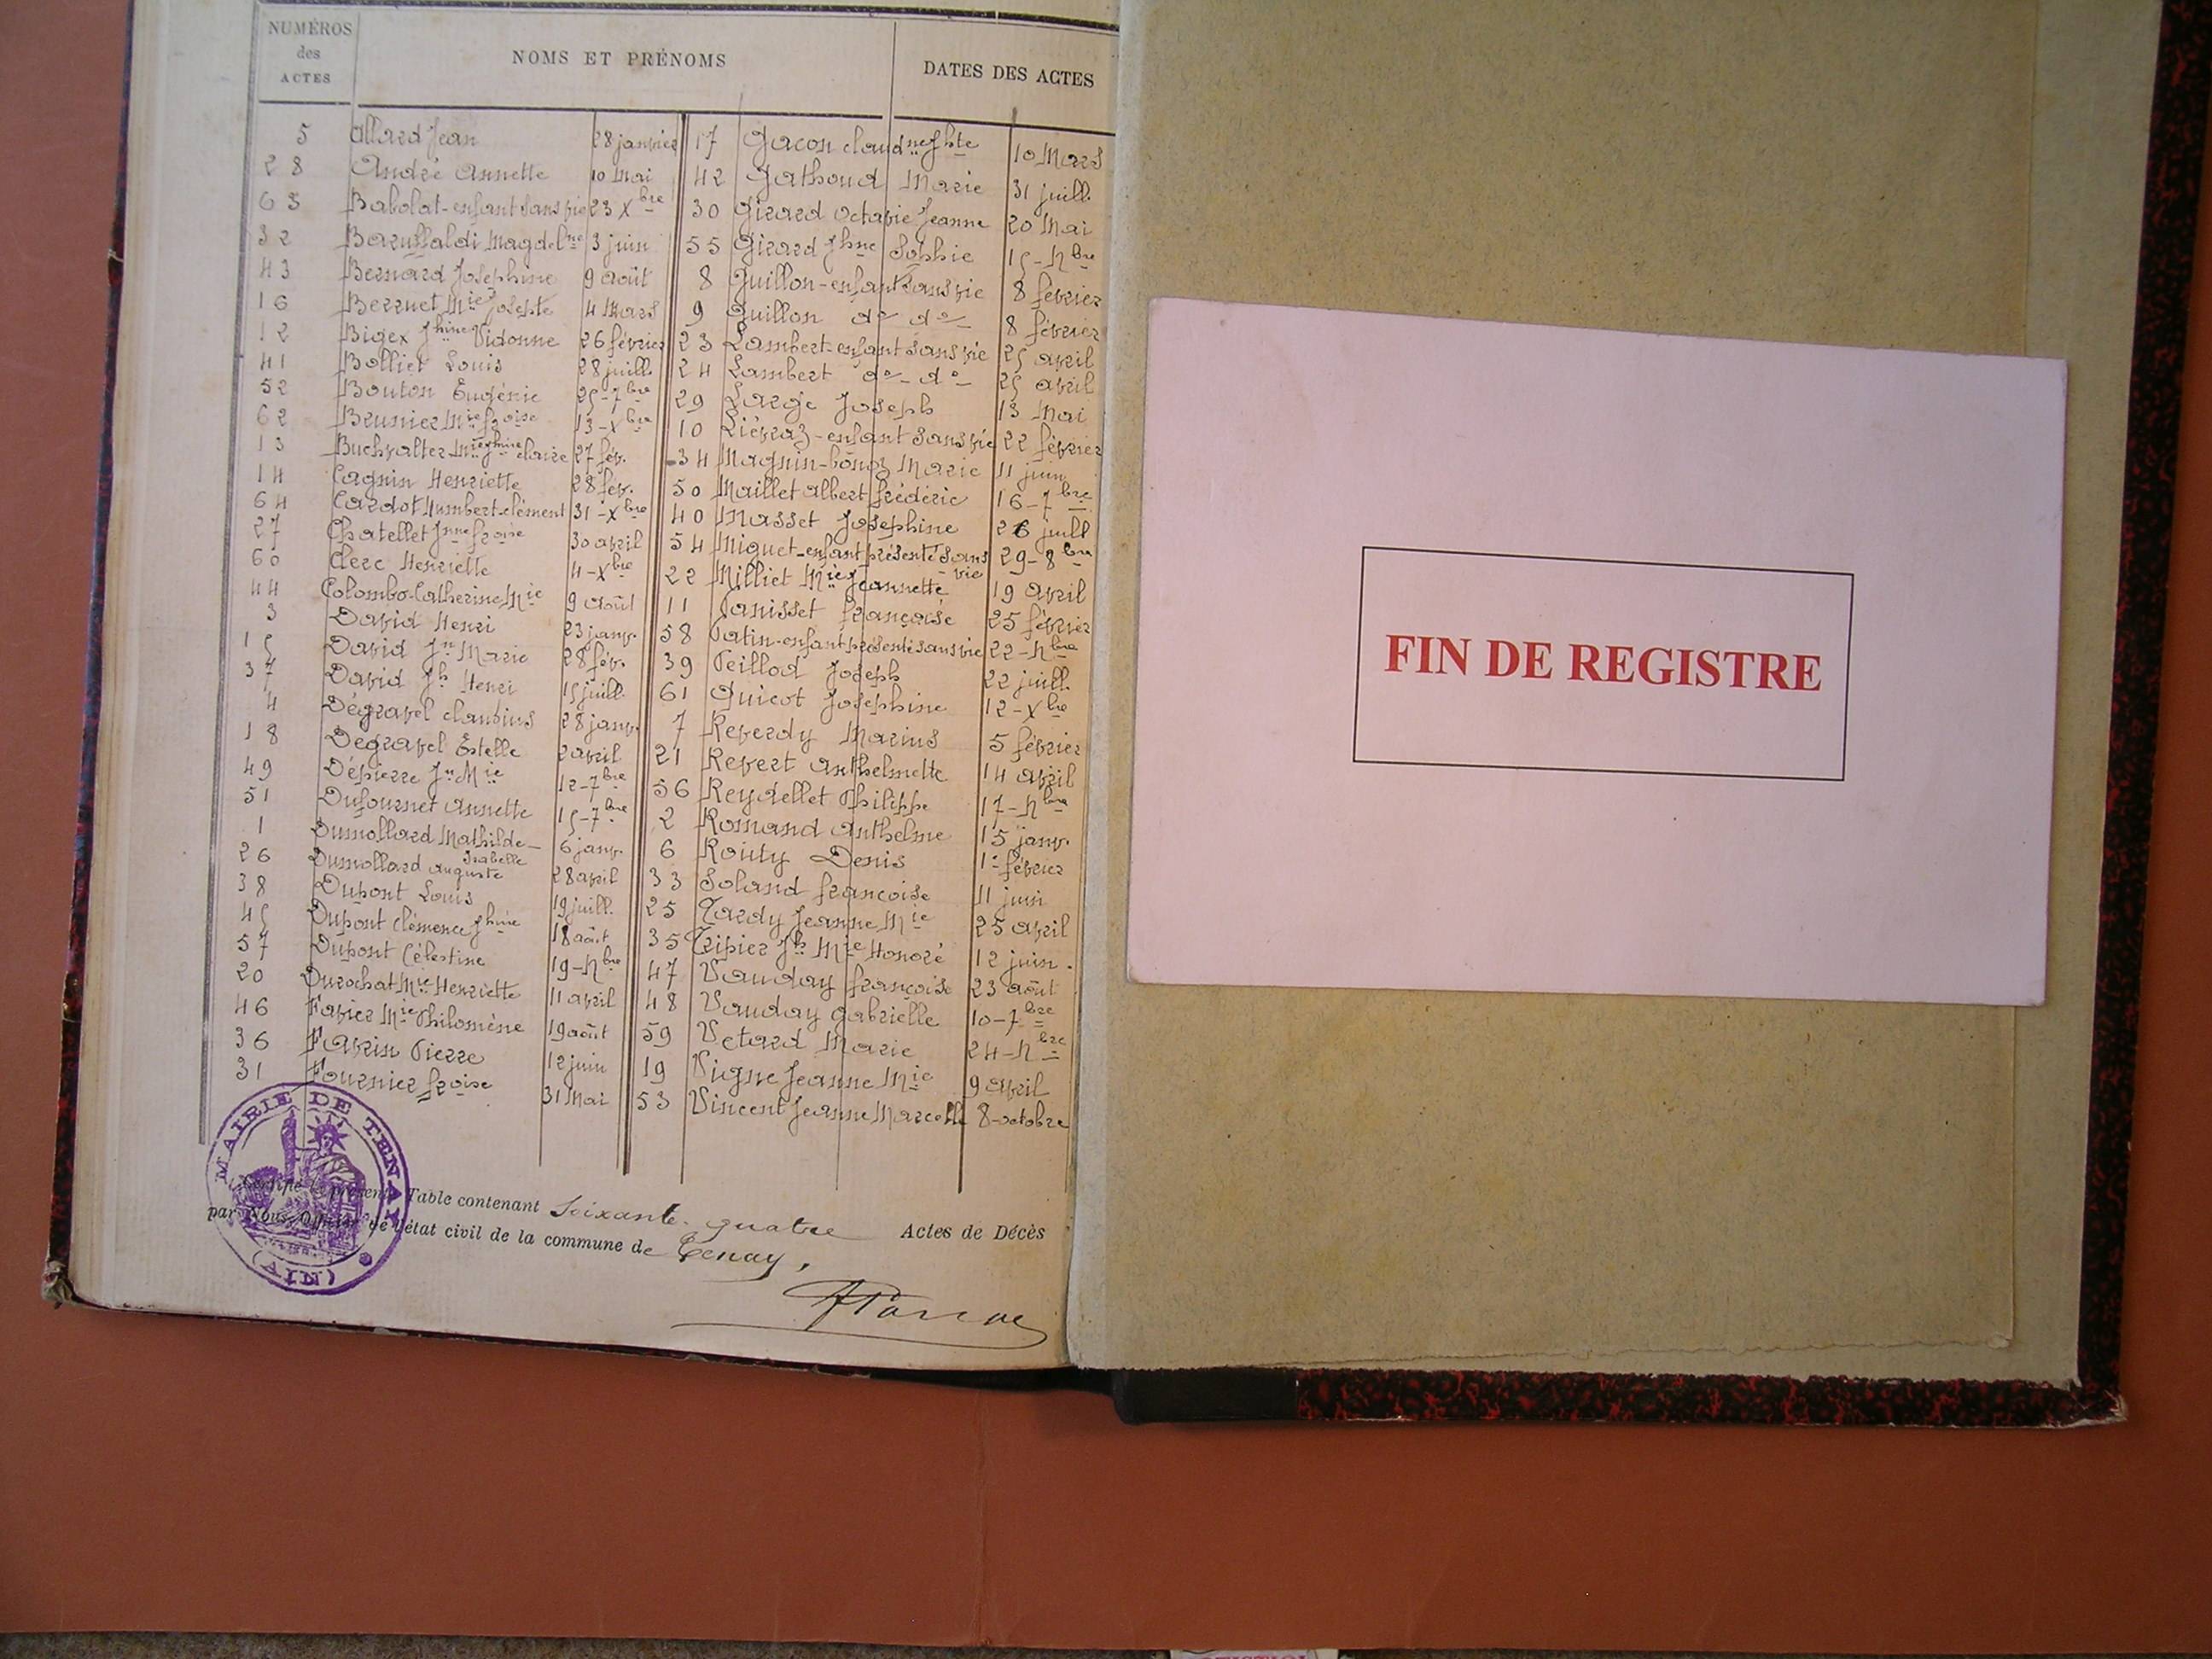 NUMÉROS
des
ACTES
NOMS ET PRÉNOMS
DATES DES ACTES
5 Allard Jean 28 janvier
28 André Annette 10 Mai
63 Babolat-enfant sans vie 23 Xbre
32 Baruffaldi Magdelne 3 juin
43 Bernard Josephine 9 août
16 Berrnet Mie Josepte 4 Mars
12 Bigex Jhine Vidonne 26 février
41 Bolliet Louis 28 juill.
52 Bouton Eugénie 25-7bre
62 Brunier Mie froise 13-Xbre
13 Buchvalter Mie Jphine claire 27 fév.
14 Cagnin Henriette 28 fév.
64 Cardot Humbert-clément 31-Xbre
27 Chatellet Jnne froise 30 avril
60 Clerc Henriette 4-Xbre
44 Colombo-Catherine Mie 9 août
3 David Henri 23 janv.
15 David Jn Marie 28 fév.
37 David Jh Henri 15 juill.
4 Dégravel claudius 28 janv.
18 Degravel Estelle 2 avril
49 Dépierre Jn Mie 12-7bre
51 Dufournet Annette 15-7bre
1 Dumollard Mathilde- 6 janv.
Isabelle
26 Dumollard Auguste 28 avril
38 Dupont Louis 19 juill.
45 Dupont Clémence Jhine 18 août
57 Dupont Célestine 19-Nbre
20 Durochat Mie Henriette 11 avril
46 Favier Mie Philomène 19 août
36 Favin Pierre 12 juin
31 Fournier froise 31 Mai
17 Gacon claudne Jhte 10 Mars
42 Gathoud Marie 31 juill.
30 Girard Octavie Jeanne 20 Mai
55 Girard Jhne Sophie 15-Nbre
8 Guillon-enfant sans vie 8 février
9 Guillon do do 8 février
23 Lambert-enfant sans vie 25 avril
24 Lambert do-do 25 avril
29 Large Joseph 13 Mai
10 Liévraz-enfant sans vie 22 février
34 Magnin-bonoz Marie 11 juin
50 Maillet Albert frédéric 16-7bre
40 Masset Josephine 26 juill
54 Miguet-enfant présenté sans vie 29-8bre
22 Milliet Mie Jeannette 19 avril
11 Panisset françoise 25 février
58 Patin-enfant présenté sans vie 22-Nbre
39 Peillod Joseph 22 juill.
61 Quicot Joséphine 12-Xbre
7 Reverdy Marius 5 février
21 Revert Anthelmette 14 avril
56 Reydellet Philippe 17-Nbre
2 Romand Anthelme 15 janv.
6 Routy Denis 1er février
33 Soland françoise 11 juin
25 Tardy Jeanne Mie 25 avril
35 Tripier Jh Mie Honoré 12 juin.
47 Vauday françoise 23 août
48 Vauday Gabrielle 10-7bre
59 Vetard Marie 24-Nbre
19 Vigne Jeanne Mie 9 avril
53 Vincent Jeanne Marcelle 8-octobre
Certifié la présente Table contenant Soixante-quatre Actes de Décès
par Nous, Officier de l'état civil de la commune de Tenay,
MAIRIE DE TENAY
(AIN)
FIN DE REGISTRE